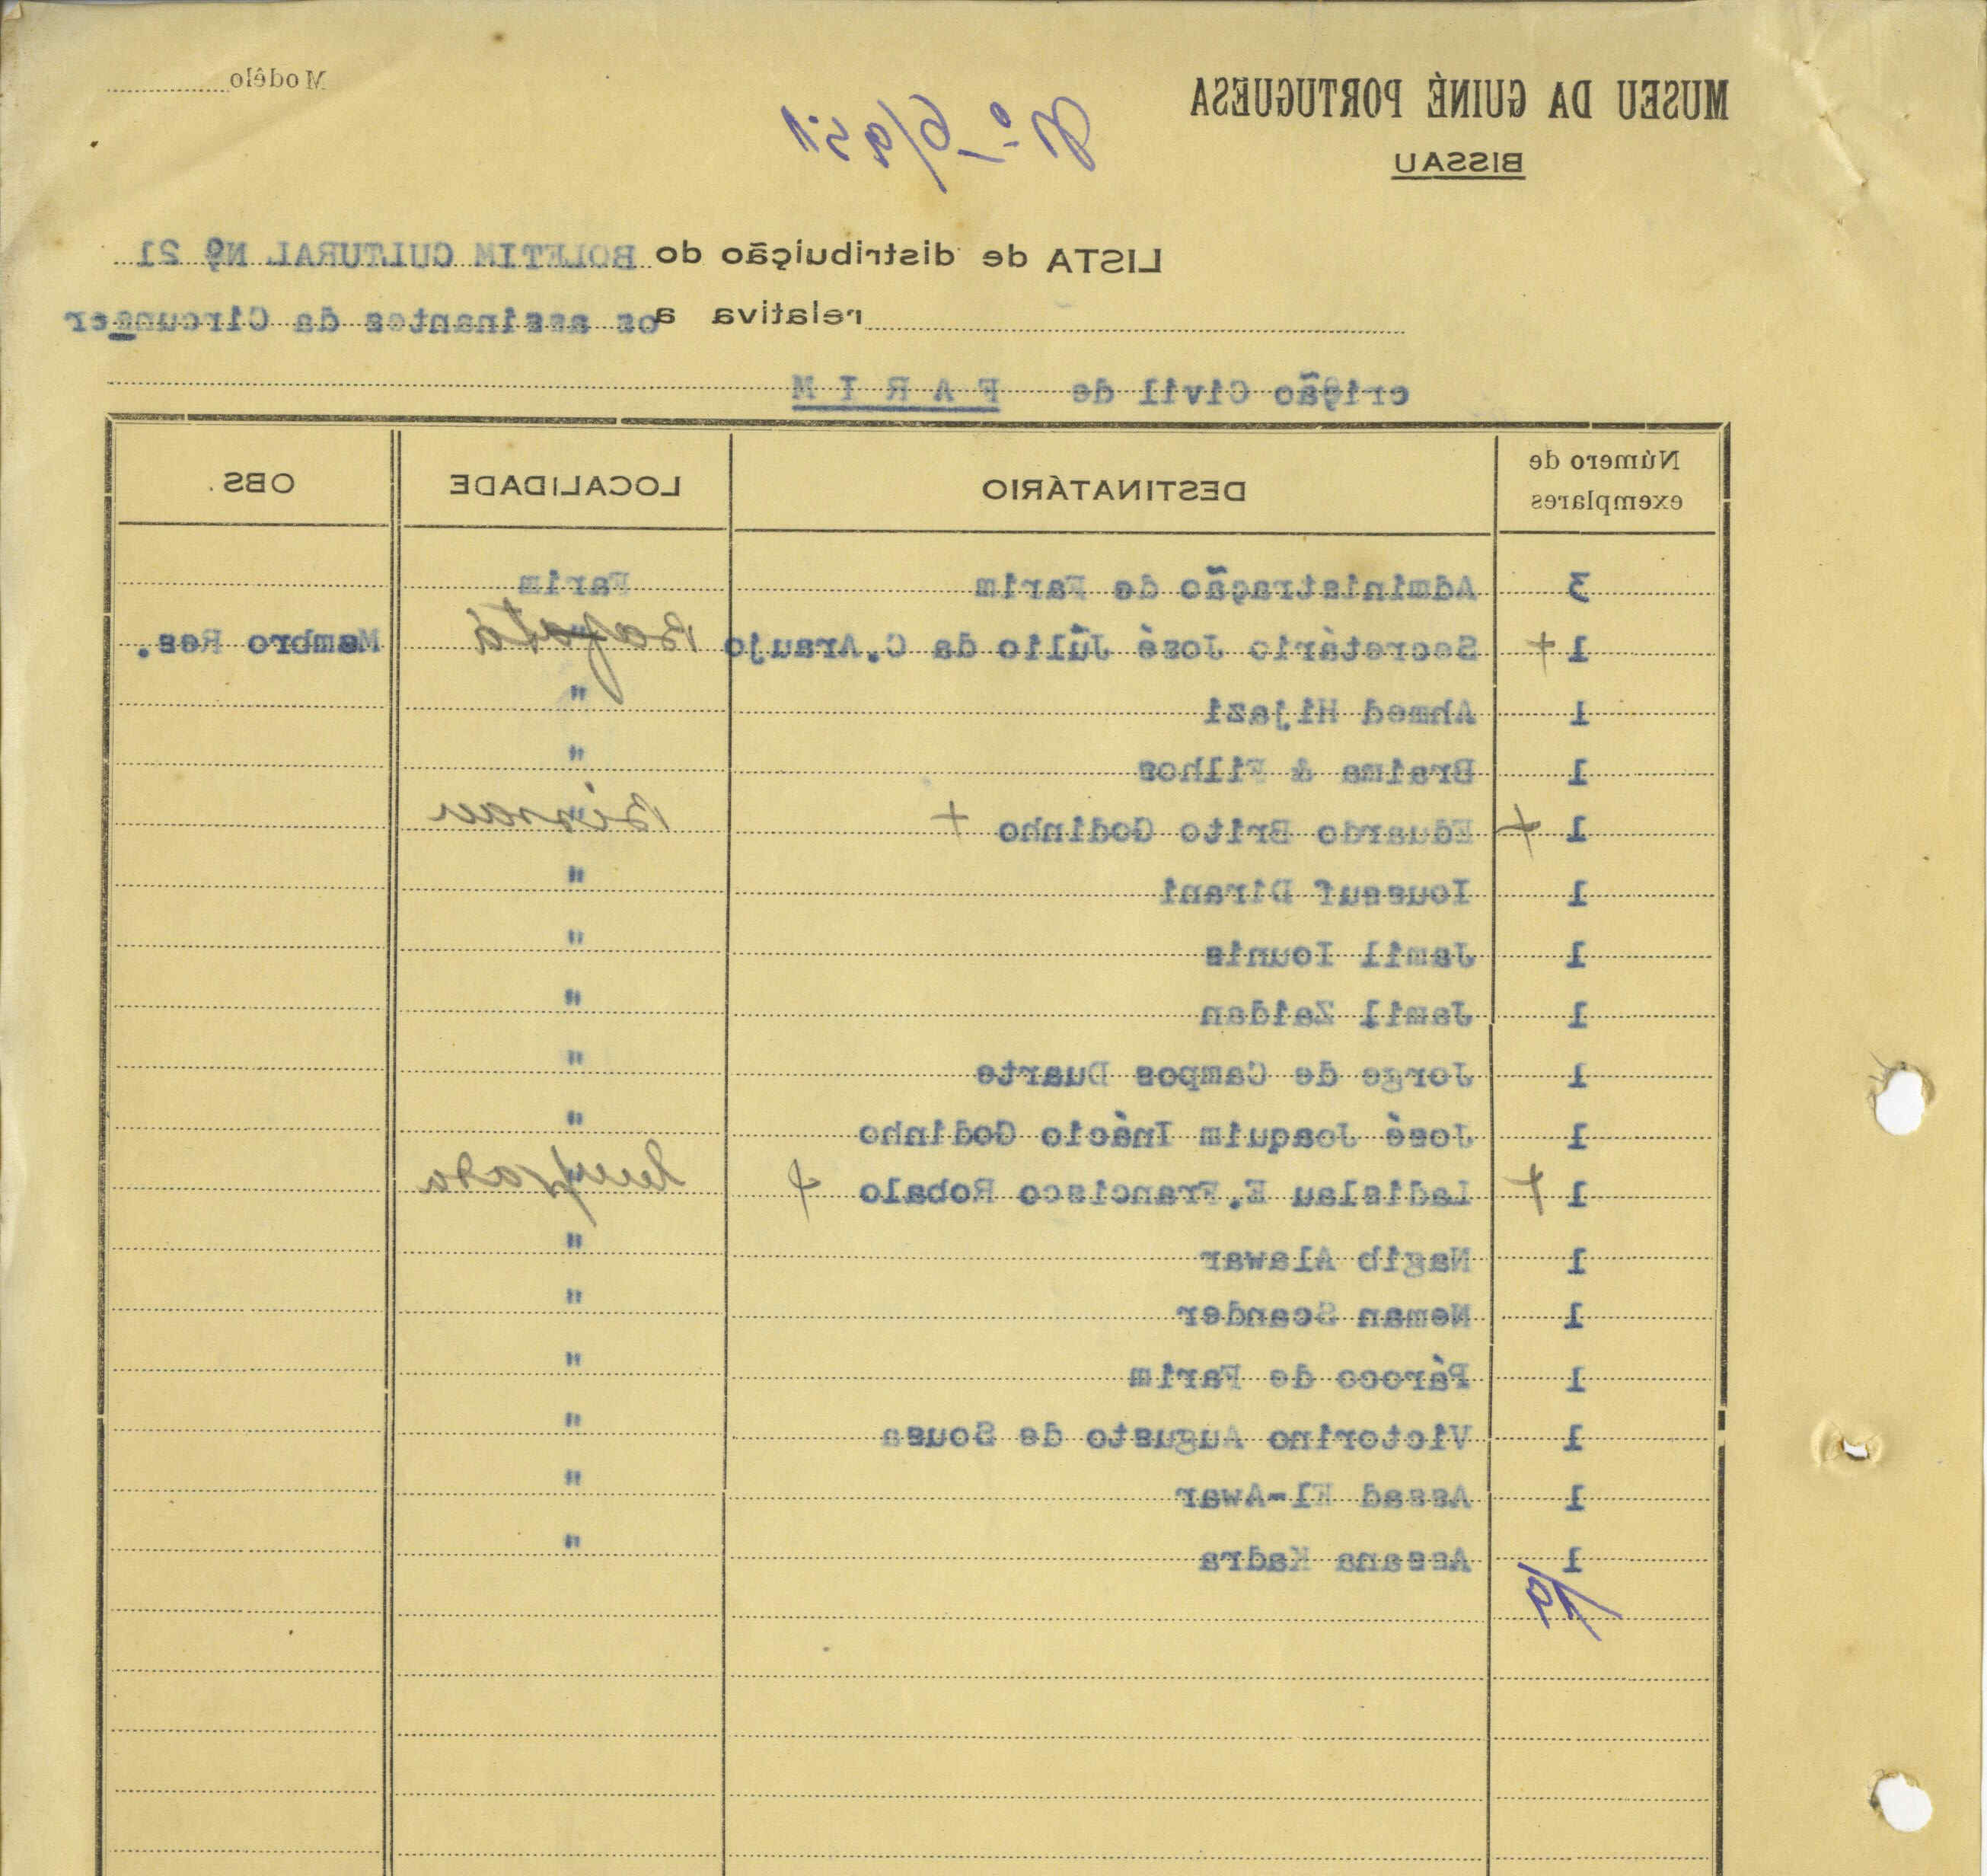 MUSEU DA GUINÉ PORTUGUESA
BISSAU
Nº 6/951
Modêlo
LISTA de distribuição do BOLETIM CULTURAL Nº 21
relativa aos assinantes da Circunscr
crição Civil de F A R I M
Número de exemplares DESTINATÁRIO LOCALIDADE OBS.
3 Administração de Farim Farim
1 + Secretário José Júlio da C.Araujo Bafatá Membro Res.
1 Ahmed Hijazi "
1 Braima & Filhos "
1 + Eduardo Brito Godinho + Bissau
1 Ioussuf Dirani "
1 Jamil Iounis "
1 Jamil Zeidan "
1 Jorge de Campos Duarte "
1 José Joaquim Inácio Godinho "
1 + Ladislau E.Francisco Robalo +
1 Nagib Alawar "
1 Neman Scander "
1 Pároco de Farim "
1 Victorino Augusto de Sousa "
1 Assad El-Awar "
1 Assana Kadra "
19